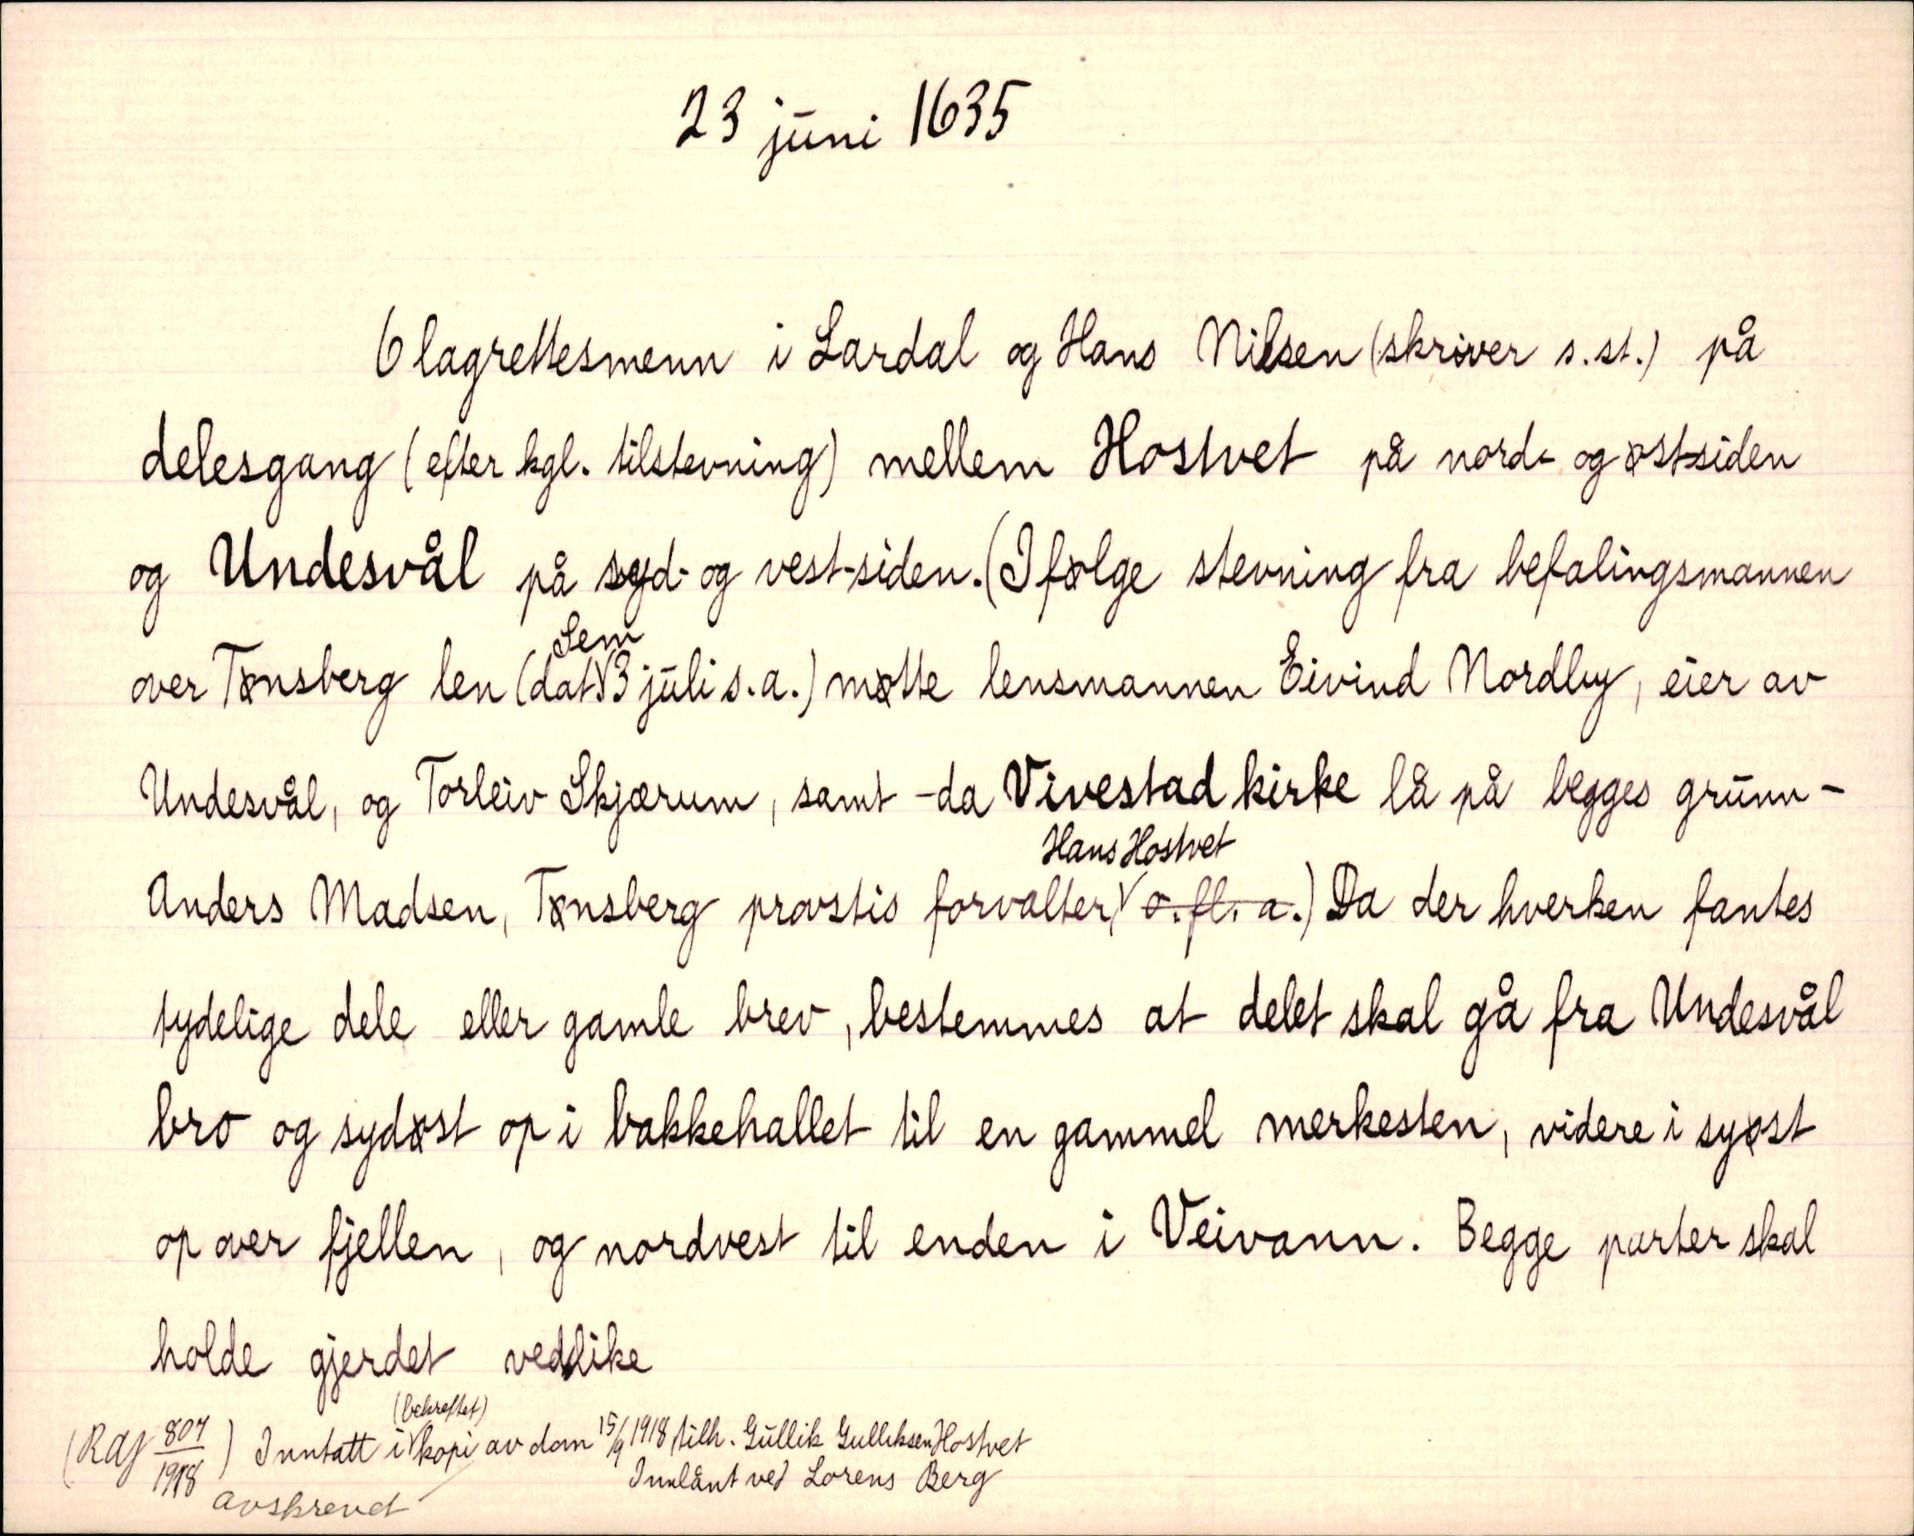 23 juni 1635
6 lagrettesmenn i Lardal og Hans Nilsen (skriver s.st.) på
delesgang (efter kgl. tilstevning) mellem Hostvet på nord- og østsiden
og Undesvål på syd- og vest-siden. (Ifølge stevning fra befalingsmannen
Sem
over Tønsberg len (dat. 3 juli s.a.) møtte lensmannen Eivind Nordby, eier av
Undesvål, og Torleiv Skjærum, samt - da Vivestad kirke lå på begges grunn -
Hans Hostvet
Anders Madsen, Tønsberg provstis forvalter, o. fl. a.) Da der hverken fantes
tydelige dele eller gamle brev, bestemmes at delet skal gå fra Undesvål
bro og sydøst op i bakkehallet til en gammel merkesten, videre i syøst
op over fjellen, og nordvest til enden i Veivann. Begge parter skal
holde gjerdet vedlike
(bekreftet)
(RAJ 807/1918) Inntatt i kopi av dom 15/9 1918, tilh. Gullik Gulliksen Hostvet
Innlånt ved Lorens Berg
avskrevet